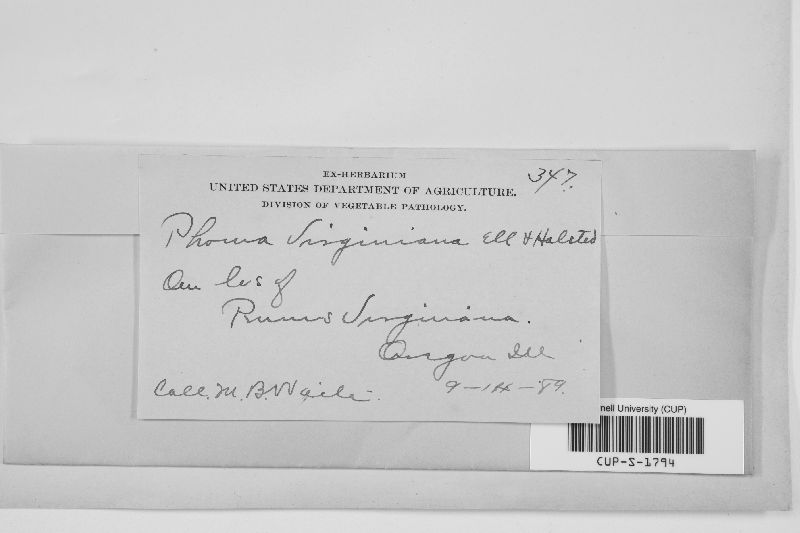 EX-HERBARIUM
347.
UNITED STATES DEPARTMENT OF AGRICULTURE.
DIVISION OF VEGETABLE PATHOLOGY.
Phoma Virginiana Ell & Halsted
On lvs of
Prunus Virginiana.
Oregon Ill
Coll. M. B. Waite. 9-14-'89.
nell University (CUP)
CUP-S-1794